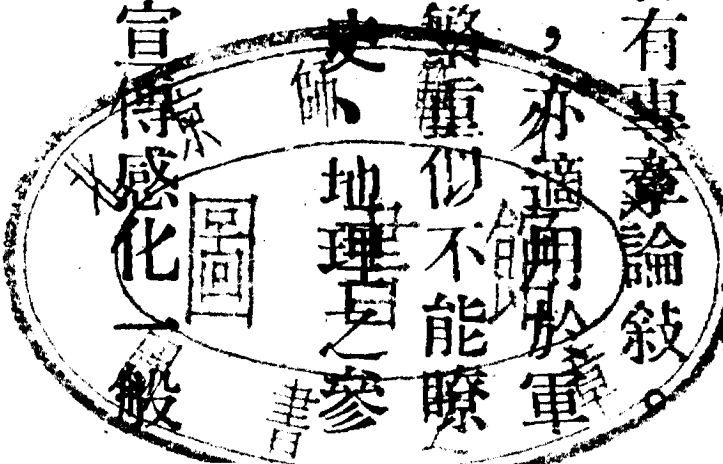 有專章論敍。
，亦適用於軍
繁重似不能瞭
史、地理之參
宣傳感化一般
圖書館